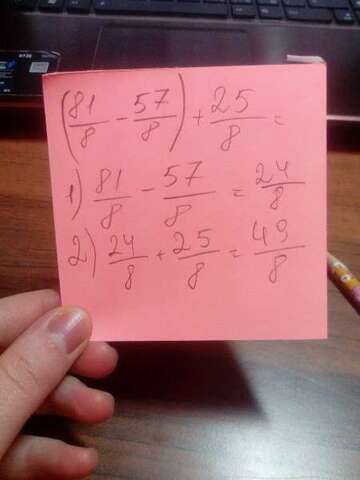 (81/8 - 57/8) + 25/8 =
1) 81/8 - 57/8 = 24/8
2) 24/8 + 25/8 = 49/8